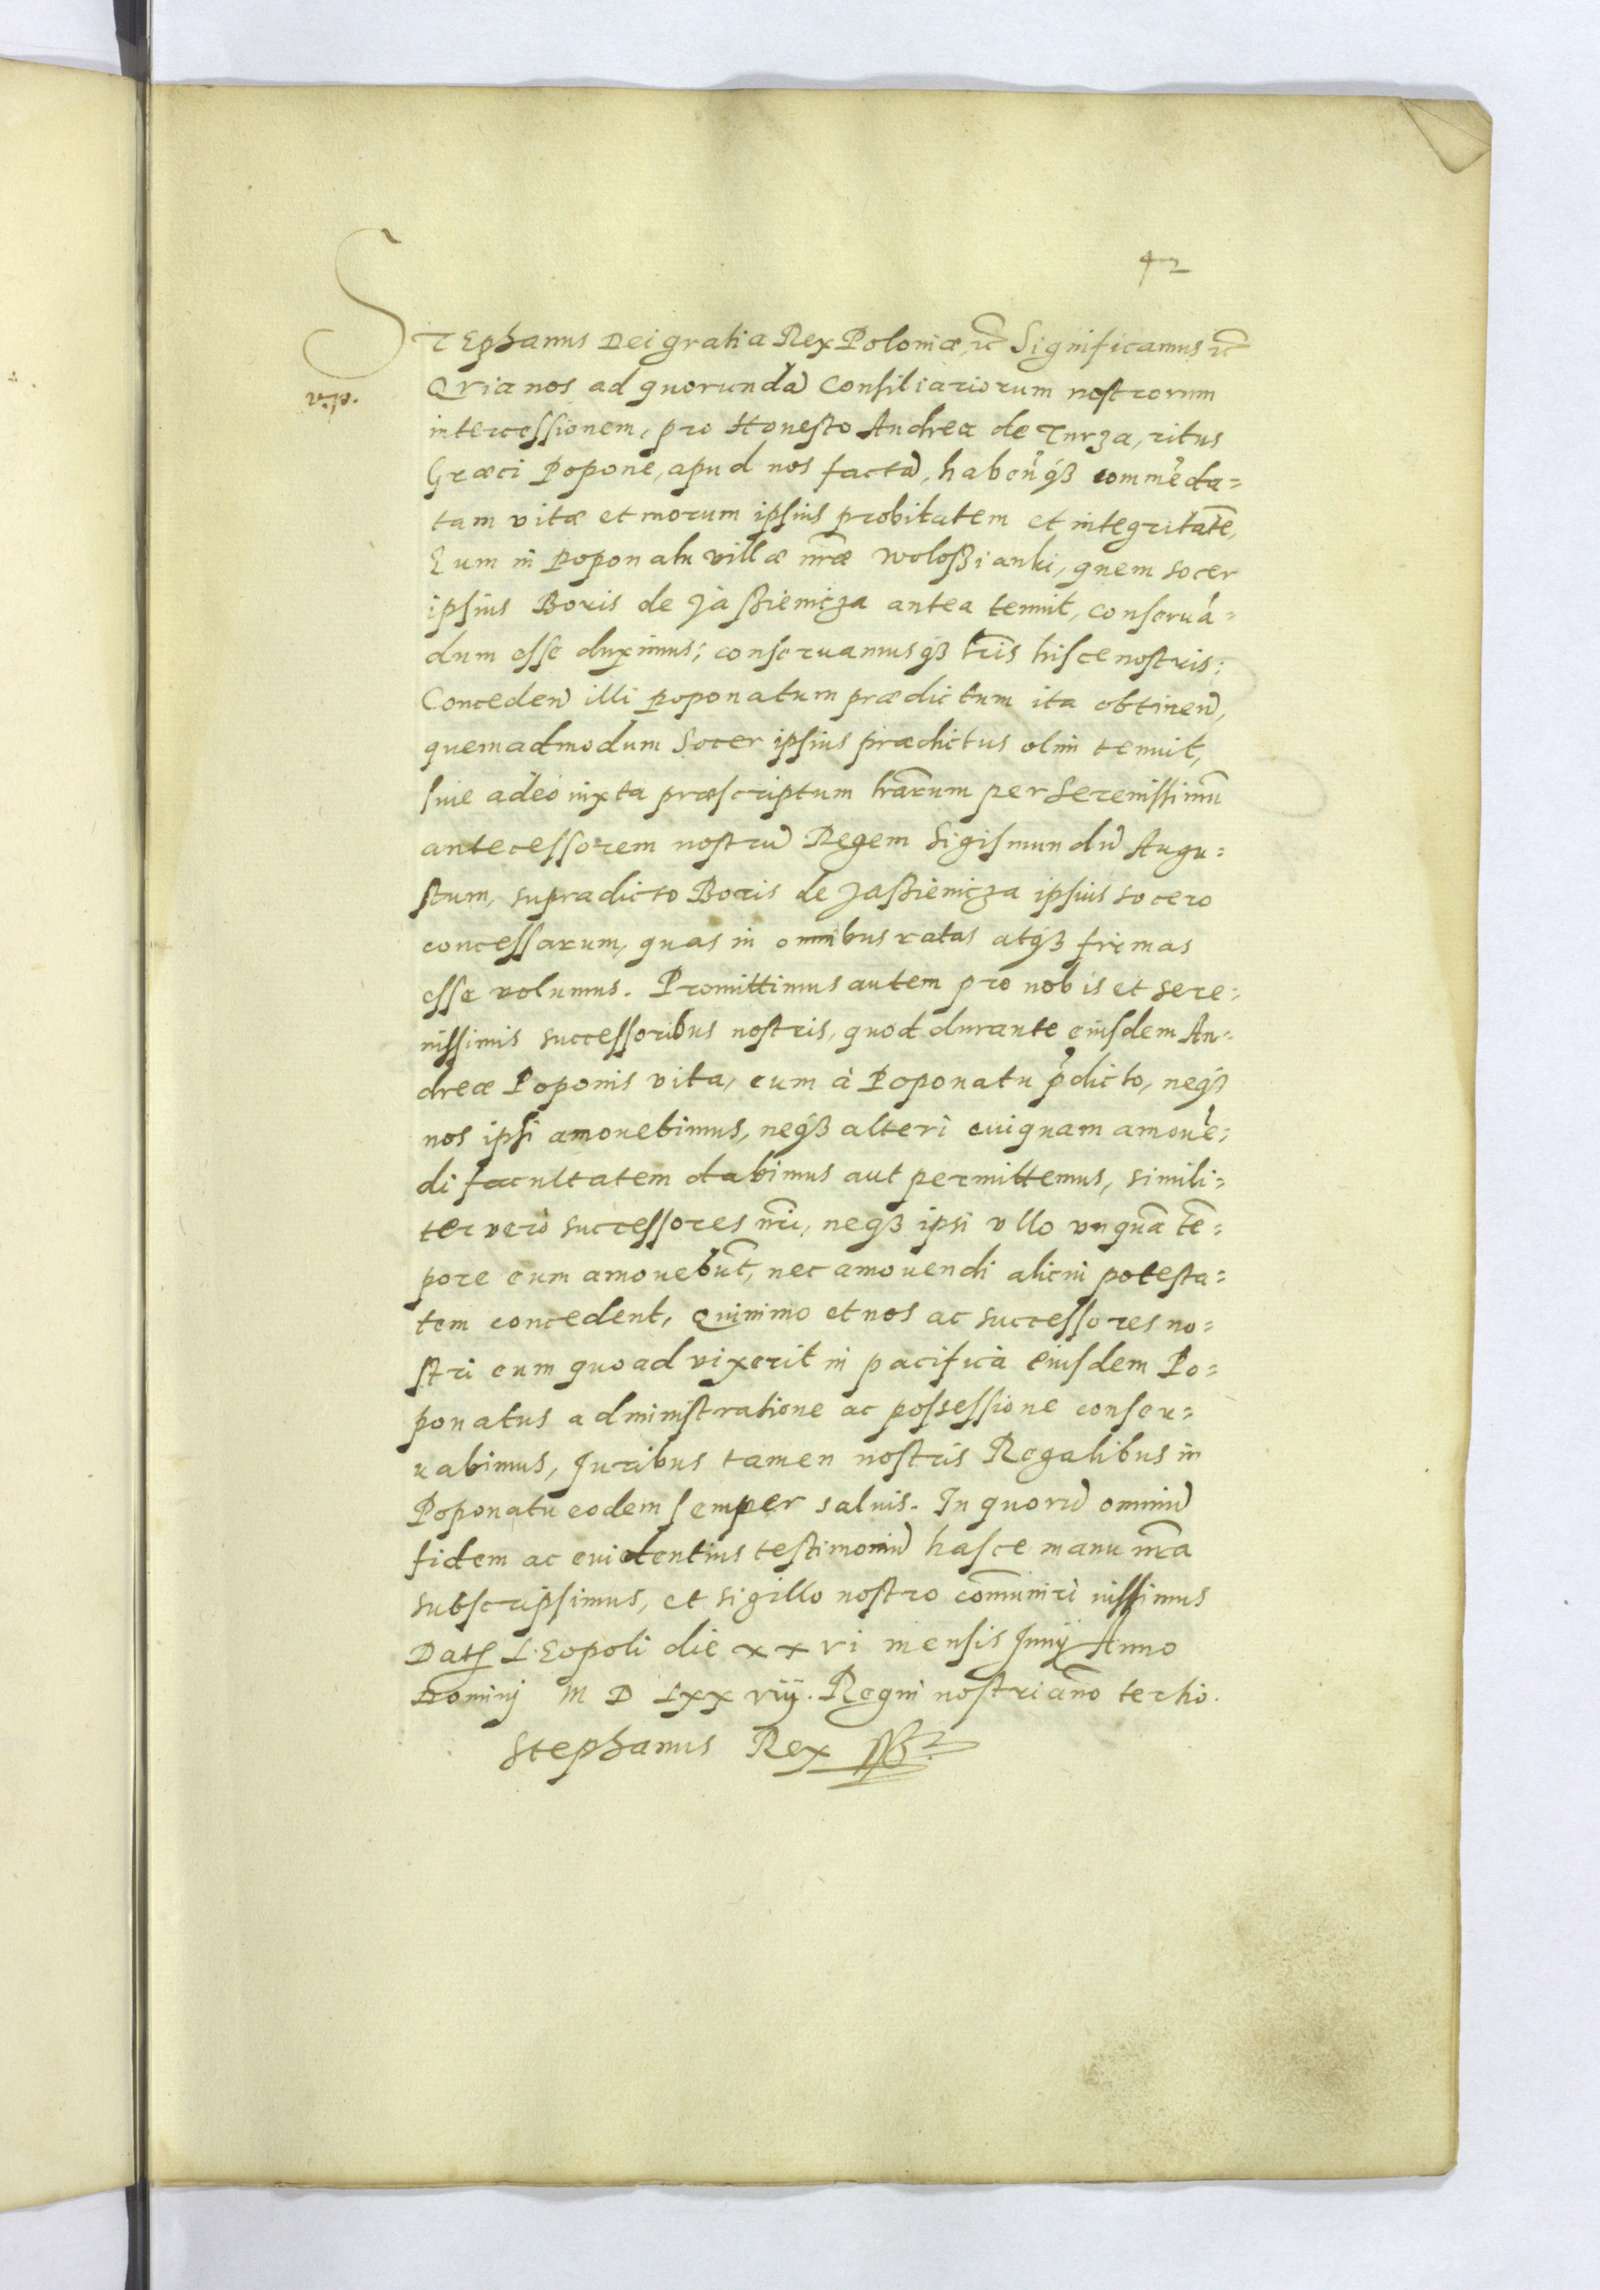 42
STEphanus Dei gratia Rex Poloniæ, etc̄ Significamus etc̄
Quia nos ad quorundā Consiliariorum nostrorum
intercessionem, pro Honesto Andrea de Turza, ritus
Græci Popone, apud nos factā, haben̄ qȝ commēda=
tam vitæ et morum ipsius probitatem et integritatē,
Eum in poponatu villæ nr̄æ Woloßianki, quem socer
ipsius Boris de Jaßienicza antea tenuit, conseruā=
dum esse duximus; conseruamusqȝ lr̄is hisce nostris;
Conceden̄ illi poponatum prædictum ita obtinen̄,
quemadmodum Socer ipsius prædictus olim tenuit,
siue adeo iuxta præscriptum lr̄arum per Serenissimū
antecessorem nostrū Regem Sigismundū Augu=
stum, supradicto Boris de Jaßienicza ipsius socero
concessarum, quas in omnibus ratas atqȝ firmas
esse volumus. Promittimus autem pro nobis et Sere=
nissimis successoribus nostris, quod durante eiusdem An=
dreæ Poponis vita, eum à Poponatu p̄dicto, neqȝ
nos ipsi amouebimus, neqȝ alteri cuiquam amouē=
di facultatem dabimus aut permittemus, simili=
ter verò successores nr̄i, neqȝ ipsi vllo vnquā tē=
pore eum amouebūt, nec amouendi alicui potesta=
tem concedent, Quinimo et nos ac successores no=
stri eum quoad vixerit in pacifica eiusdem Po=
ponatus administratione ac possessione conser=
uabimus, Juribus tamen nostris Regalibus in
Poponatu eodem semper saluis. In quorū omniū
fidem ac euidentius testimoniū hasce manu nr̄a
subscripsimus, et sigillo nostro com̄uniri iussimus
Dat. LEopoli die xxvi mensis Junij Anno
Dominj M D Lxxviij. Regni nostri an̄o tertio.
Stephanus Rex